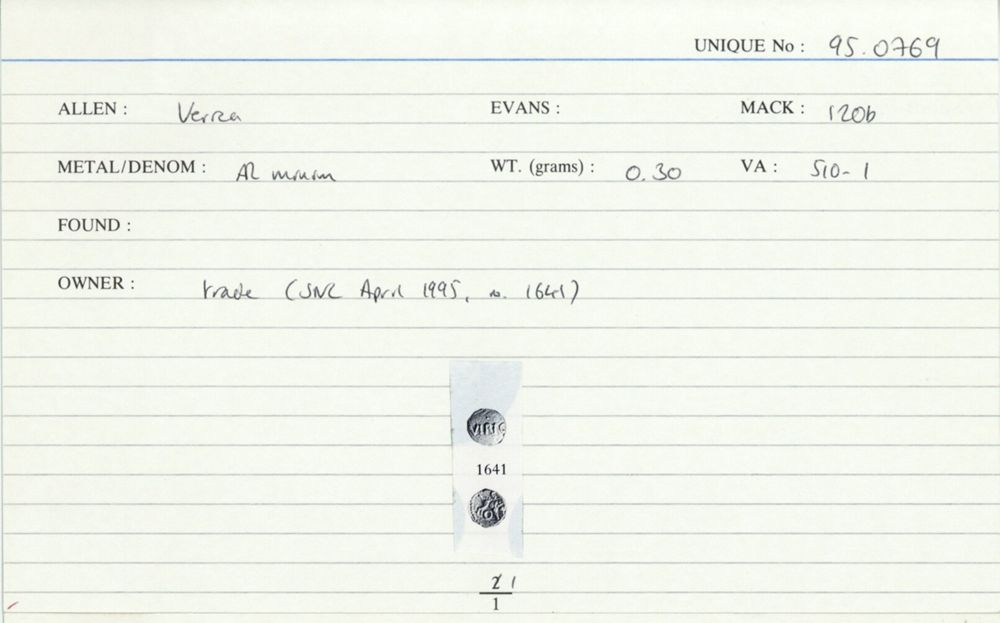 UNIQUE No : 95.0769
ALLEN : Verica EVANS : MACK : 120b
METAL/DENOM : AR minim WT. (grams) : 0.30 VA : 510-1
FOUND :
OWNER : trade (SNC April 1995, no. 1641)
VIRIC
1641
1
1